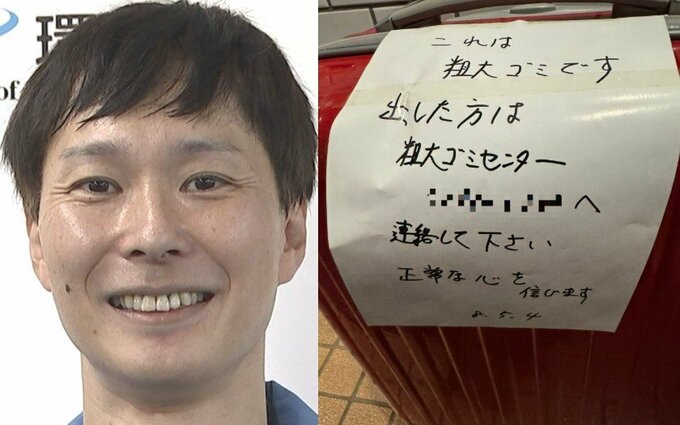 環
of
これは
粗大ゴミです
出した方は
粗大ゴミセンター
へ
連絡して下さい
正常な心を
信じます
8.5.4